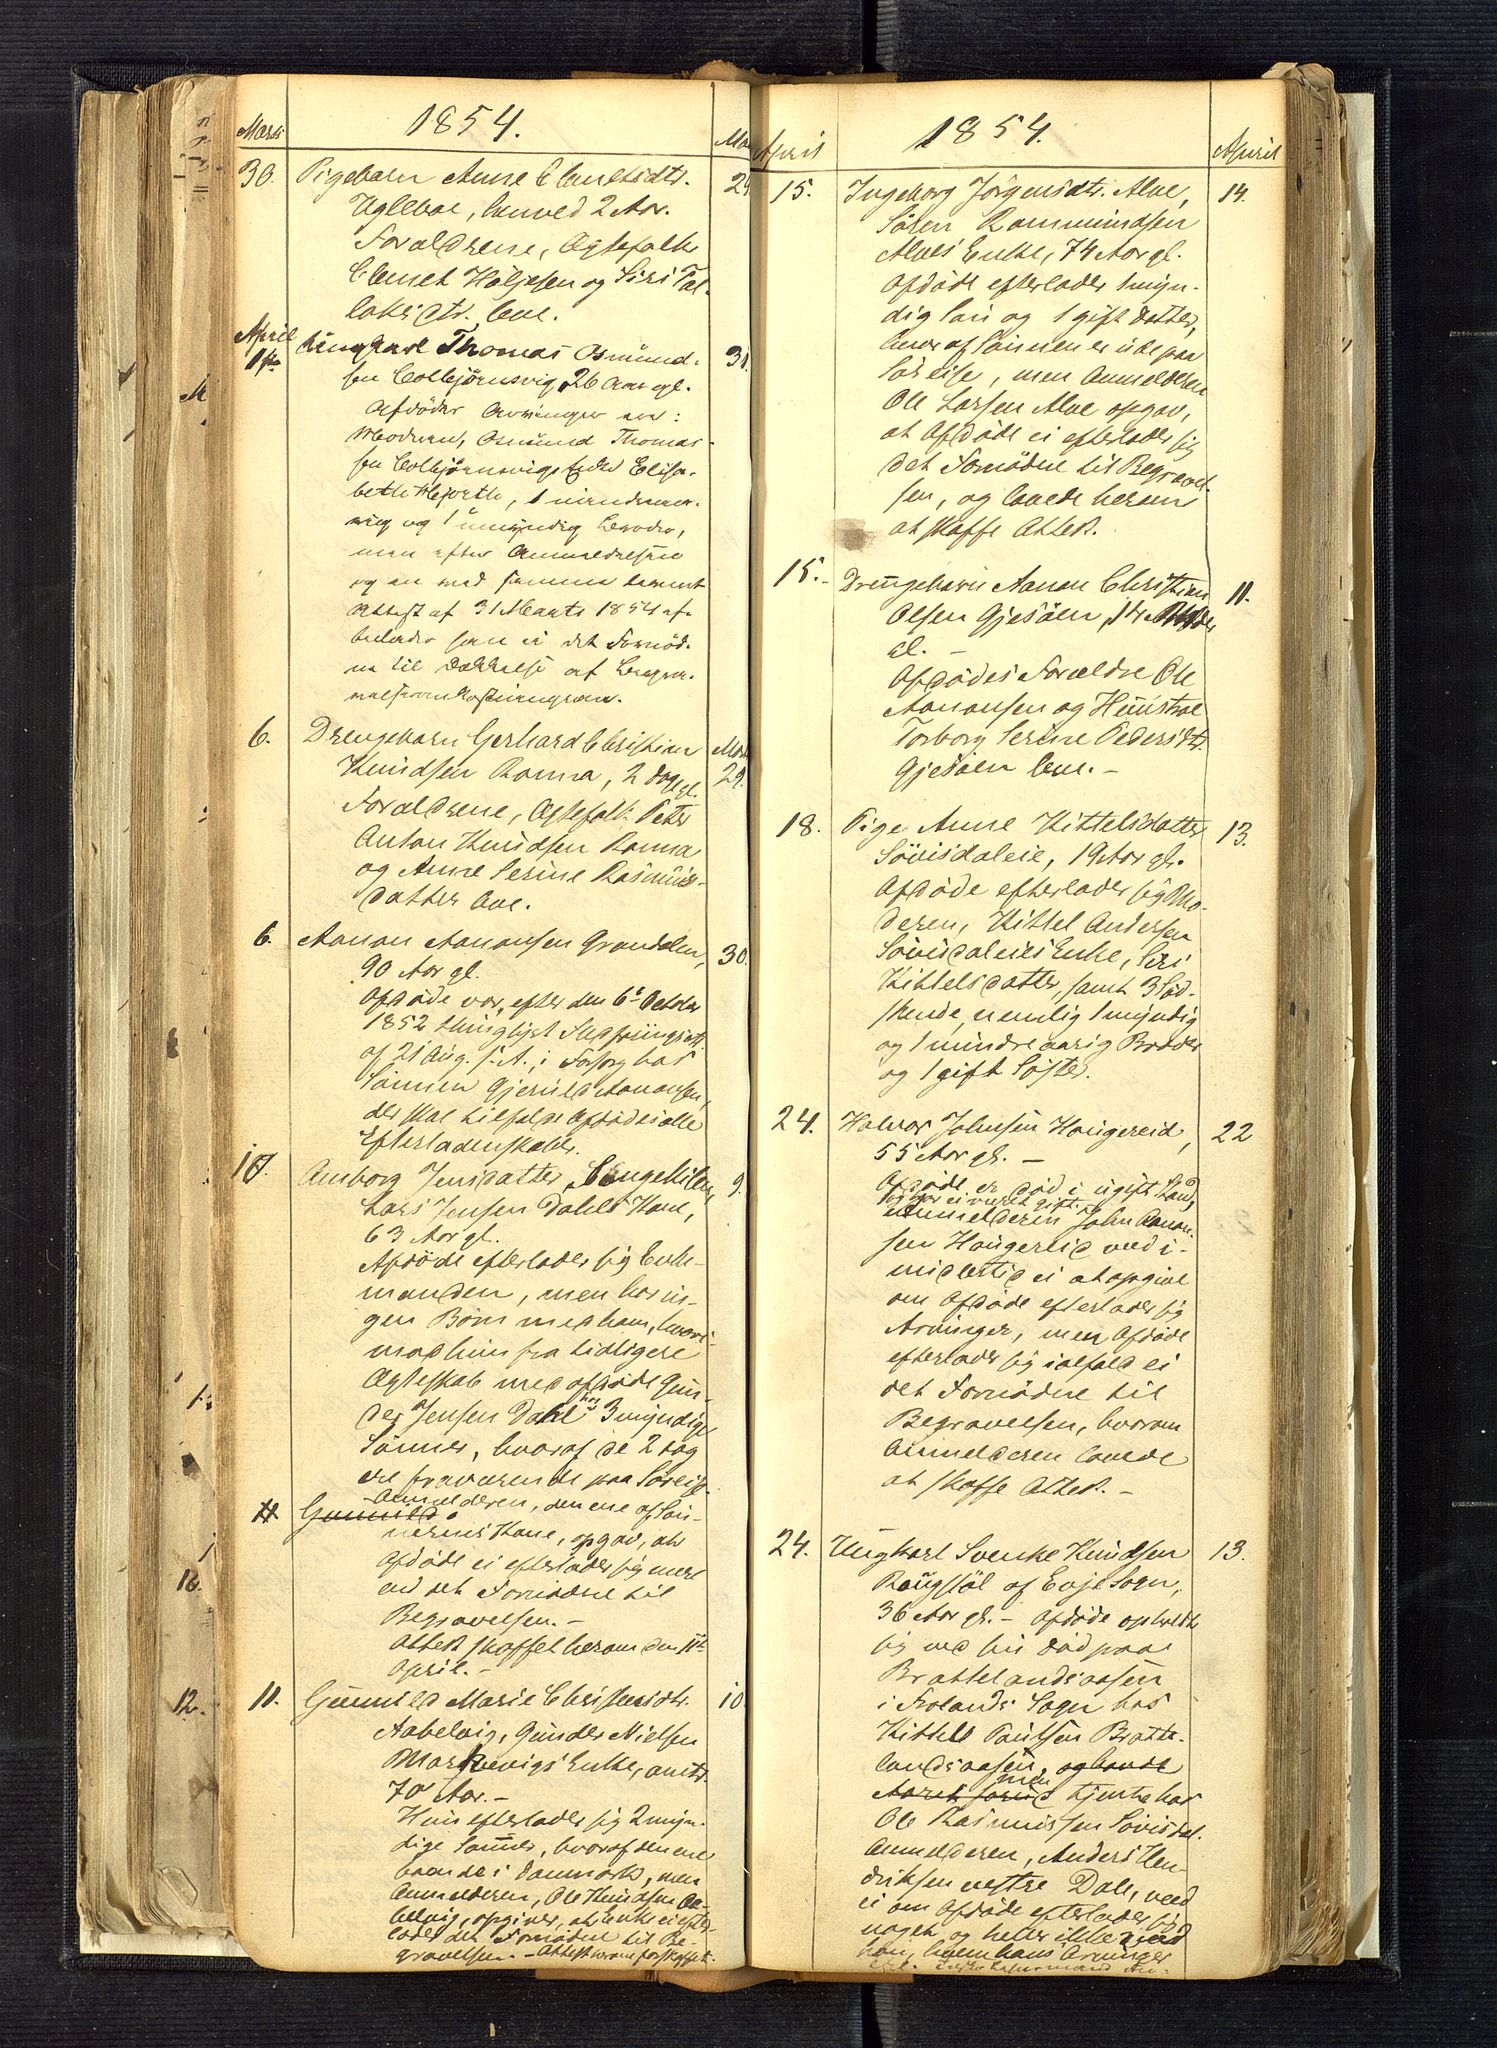 1854.
Marts
30. Pigebarn Anne Clemetsdtr. 29
Ugleboe, henved 2 Aar.
Forældrene, Ægtefolk
Clemet Høljesen og Siri Tal-
laksdtr. leve.
April
1ste Ungkarl Thomas Osmund- 31.
sen Colbjørnsvig, 26 Aar gl.
Afdødes Arvinger ere:
Moderen, Osmund Thomas-
sen Colbjørnsvigs Enke Elisa-
beth Hjorth, 1 mindreaa-
rig og 1 umyndig Broder,
men efter Anmeldelsen
og en med samme
Attest af 31 Marts 1854 ef-
terlader han ei det Fornød-
ne til Dækkelse af Begra-
velsesomkostningerne.
6. Drengebarn Gerhard Christian Marts
Knudsen Ranna, 2 Dage gl. 29.
Forældrene, Ægtefolk Peter
Anton Knudsen Ranna
og Anne Serine Rasmus-
datter leve.
6. Aanon Aanonsen Grandalen, 30.
90 Aar gl.
Afdøde var, efter den 6te October
1852 thinglyst
af 21 Aug. s. A., i Forsorg hos
Sønnen Gjeruld Aanonsen,
der skal tilfalde Afdødes alle
Efterladenskaber.
10. Anborg Jensdatter Längekilen, 9.
Lars Jensen Dahls Kone,
63 Aar gl.
Afdøde efterlader sig Enke-
manden, men har in-
gen Børn med ham, hvori-
mod hun fra tidligere
Ægteskab med afdøde Gun-
der Jensen Dahl har 3 myndige
Sønner, hvoraf de 2 dog
ere fraværende paa Søreise.
11 Gunnild Anmelderen, den ene af Søn-
nernes Kone, opgav, at
Afdøde ei efterlader sig mere
end det Fornødne til
Begravelsen. –
Attest skaffet herom den 11te
April. –
11. Gunnild Marie Christensdtr. 10.
Aabelvig, Gunder Nielsen
Markvevigs Enke, omtr.
70 Aar. –
Hun efterlader sig 2 myn-
dige Sønner, hvoraf den ene
boende i Danmark, men
Anmelderen, Ole Knudsen Aa-
belvig, opgiver, at Enken ei efter-
lader det Fornødne til Be-
gravelsen. – Attest herom forskaffet.
1854.
April April
15. Ingeborg Jørgensdtr. Alve, 14.
Søren Rommundsen
Alves Enke, 74 Aar gl.
Afdøde efterlader 1 myn-
dig Søn og 1 gift Datter,
hvoraf Sønnen er ude paa
Søreise, men Anmelderen
Ole Larsen Alve opgav,
at Afdøde ei efterlader sig
det Fornødne til Begravel-
sen, og lovede herom
at skaffe Attest.
15. Drengebarn Aanon Christian 11.
Olsen Gjesøen, 14
gl. –
Afdødes Forældre Ole
Aanonsen og Hustrue
Torborg Serine Pedersdtr.
Gjesøen leve. –
18. Pige Anne Kittelsdatter 13.
Søvisdaleie, 19 Aar gl.
Afdøde efterlader sig Mo-
deren, Kittel Andersen
Søvisdaleies Enke, Siri
Kittelsdatter, samt 3 Sød-
skende, nemlig 1 myndig
og 1 mindreaarig Broder
og 1 gift Søster.
24. Halvor Johnsen Haugereid, 22
55 Aar gl. –
Afdøde er død i ugift Stand,
og har ei været gift.
Anmelderen John Aanon-
sen Haugereid veed i-
midlertid ei at opgive
om Afdøde efterlader sig
Arvinger, men Afdøde
efterlader sig ialfald ei
det Fornødne til
Begravelsen, hvorom
Anmelderen lovede
at skaffe Attest. –
24. Ungkarl Svenke Knudsen 13.
Raugstøl af Evje Sogn,
36 Aar gl. – Afdøde opholdt
sig ved sin Død paa
Brattelandsaasen
i Frolands Sogn hos
Kittel Paulsen Bratte-
landsaasen, og havde
men
Aaret forud tjente hos
Ole Rasmussen Søvisdal.
Anmelderen, Anders Hen-
driksen vestre Dale, veed
ei om Afdøde efterlader sig
noget, og heller ikke veed
han, hvem hans Arvinger